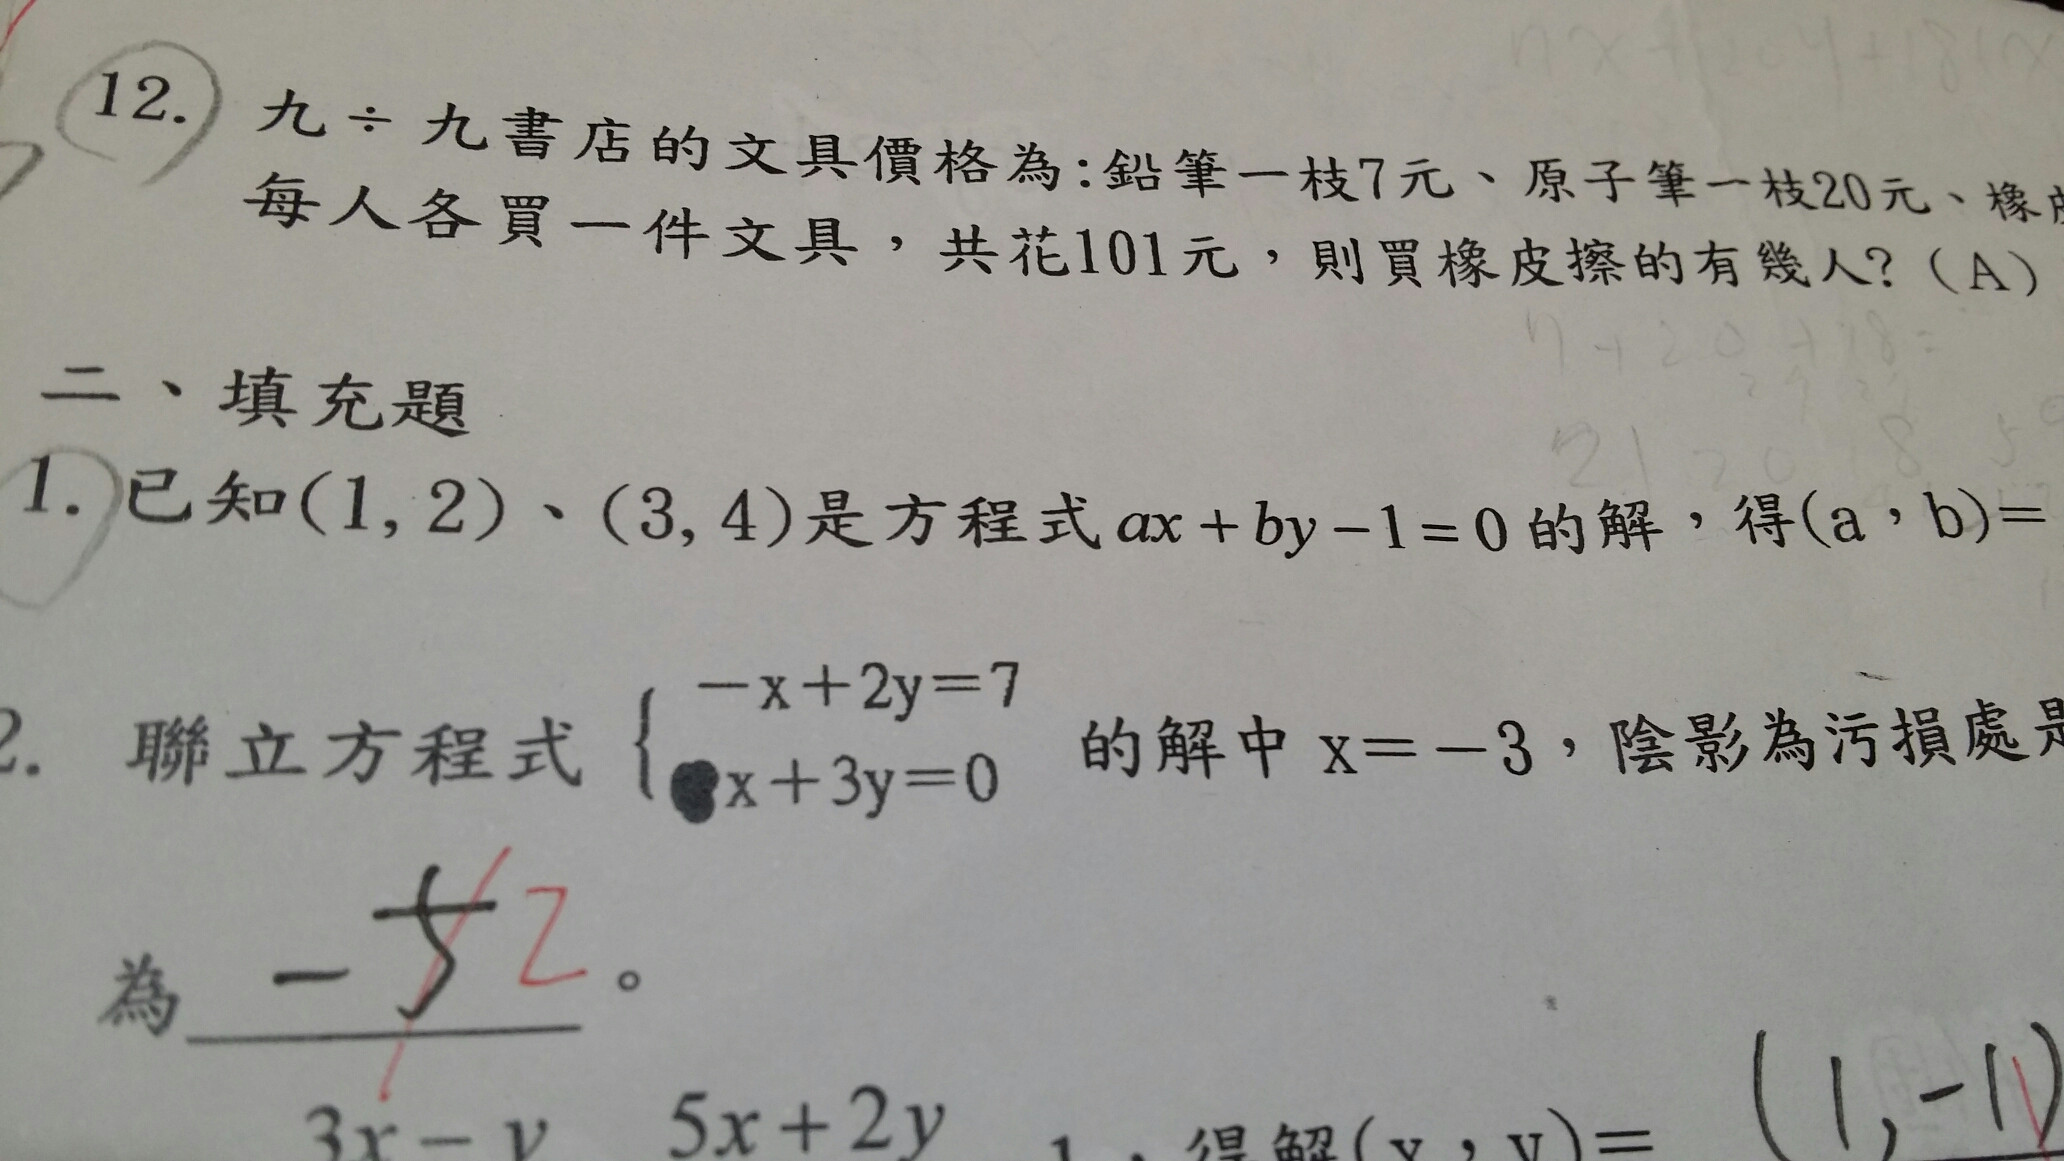 12. 九÷九書店的文具價格為:鉛筆一枝7元、原子筆一枝20元、橡
每人各買一件文具，共花101元，則買橡皮擦的有幾人?(A)
7+20+18=
二、填充題
1. 已知(1, 2)、(3, 4)是方程式ax+by−1=0的解，得(a，b)=
2. 聯立方程式{−x+2y=7
x+3y=0 的解中 x=−3，陰影為污損處是
為 −5 2 。
3x−y 5x+2y 1，得解(x，y)= (1,−1)